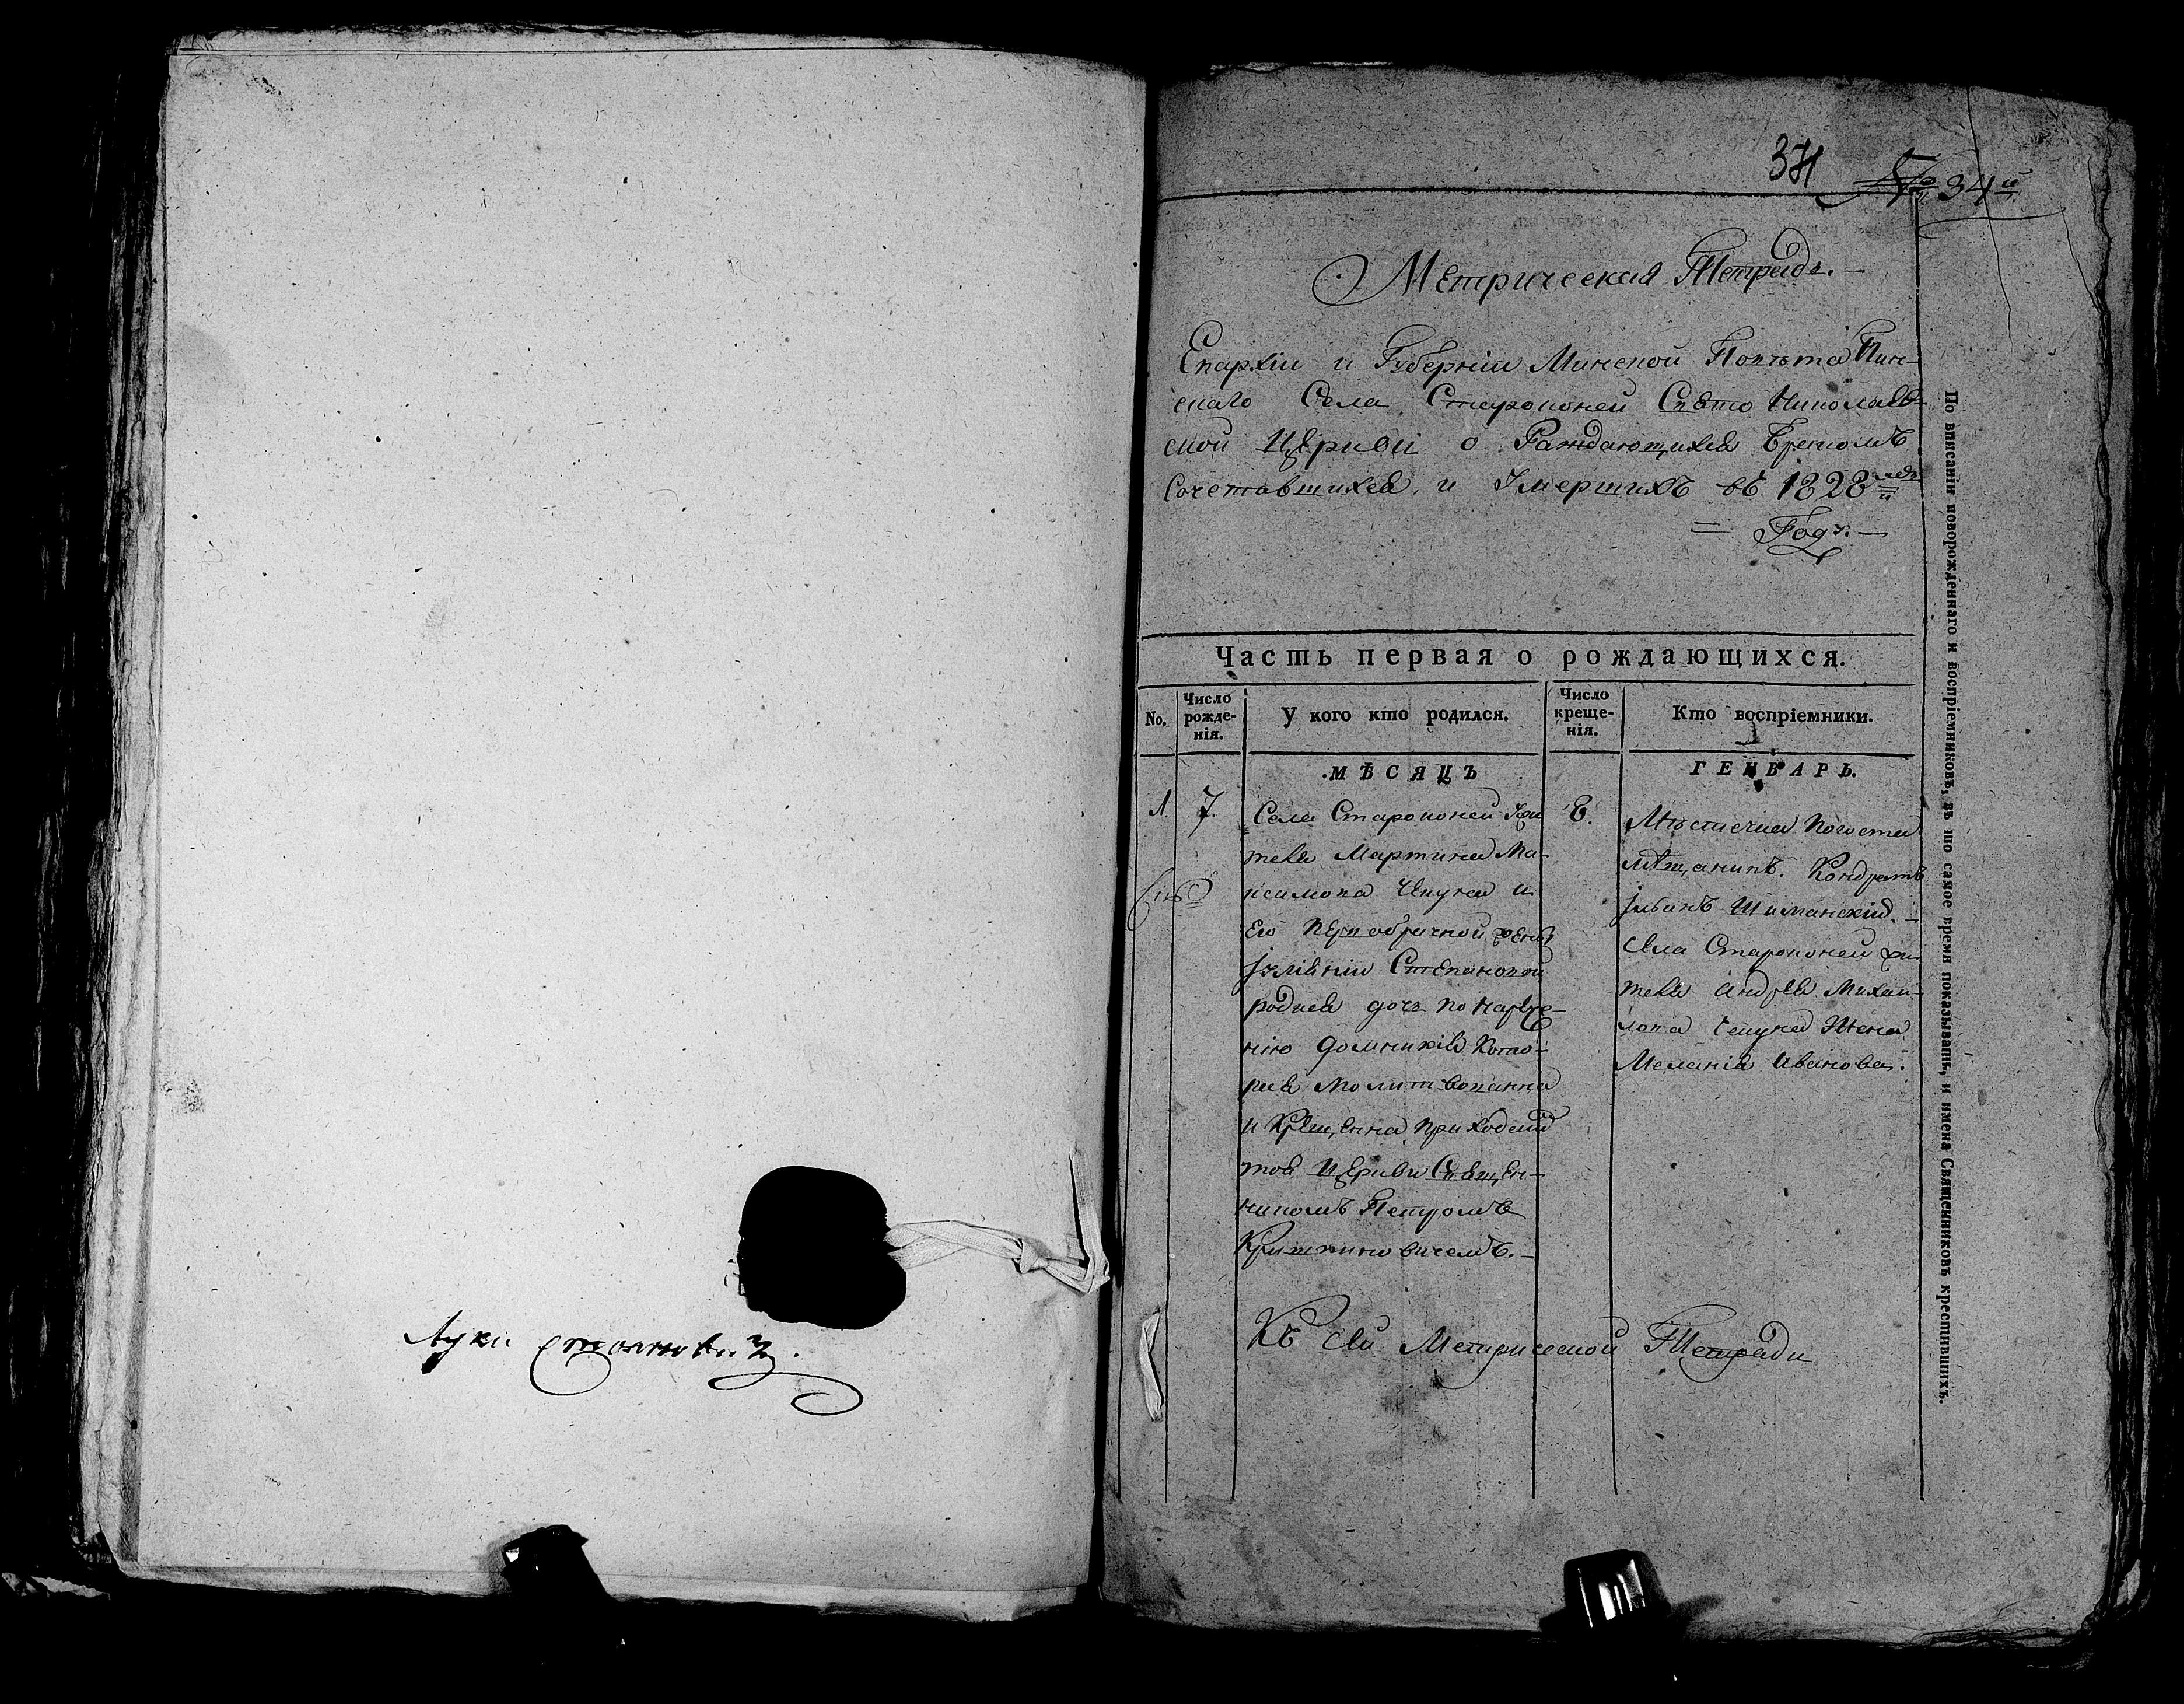 Луки
371
34й
Метрическая Тетрадь.
Епархіи и Губерніи Минской Повѣта Пин-
скаго Села Староконей Свято Николаев-
ской Церкви о Раждающихся Бракомъ
Сочетавшихся и Умершихъ въ 1828
Годъ.
Часть первая о рождающихся.
No.
Число рожденія.
У кого кто родился.
Число крещенія.
Кто воспріемники.
МѢСЯЦЪ
ГЕНВАРЬ.
1. 7.
Села Староконей жи
теля Мартина Ма-
ксимова Чепука и
его первобрачной жены
Іуліяніи Степановой
родися дочь по нарече-
нію Домникія кото-
рая молитвованна
и крещенна приходскія
тоя Церкви Священ-
никомъ Петромъ
8.
Мѣстечка Погоста
мѣщанинъ Кондратъ
Шиманскій.
села Староконей жи
теля Андрея Михаи-
лова Чепука Жена
Меланія Иванова.
Къ сей Метрической Тетради
По вписаніи новорожденнаго и воспріемниковъ, въ то самое время показывать, и имена Священниковъ крестившихъ.